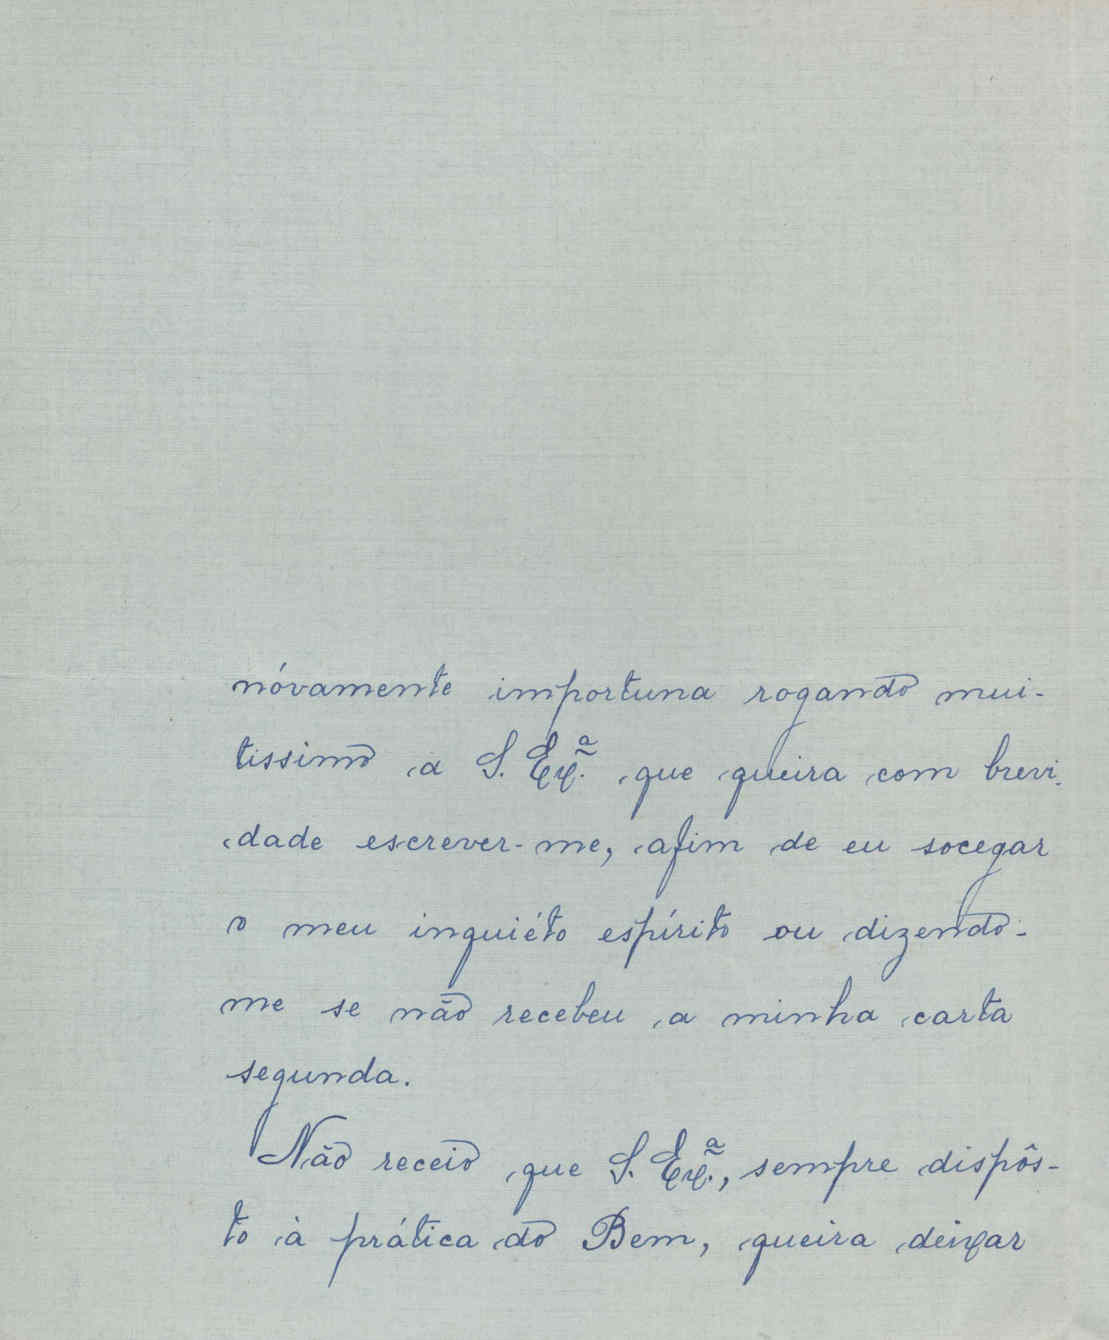 nóvamente importuna rogando mui-
tissimo a S. Exª. que queira com brevi-
dade escrever-me, afim de eu socegar
o meu inquiéto espírito ou dizendo-
me se não recebeu a minha carta
segunda.
Não receio que S. Exª., sempre dispôs-
to à prática do Bem, queira deixar